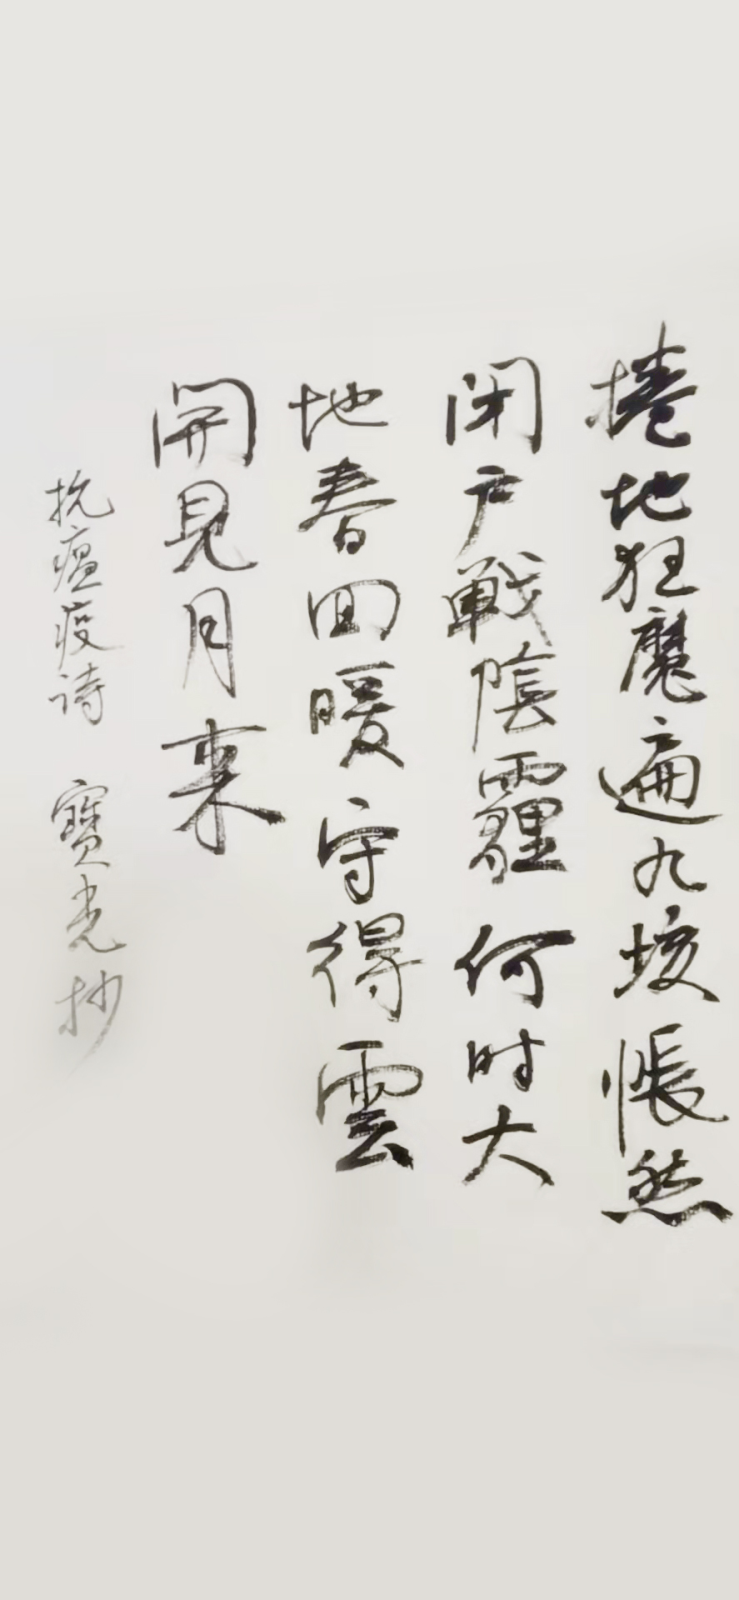 捲地狂魔遍九垓悵然
閉户戰陰霾何时大
地春回暖守得雲
開見月来
抗瘟疫诗 寶光抄